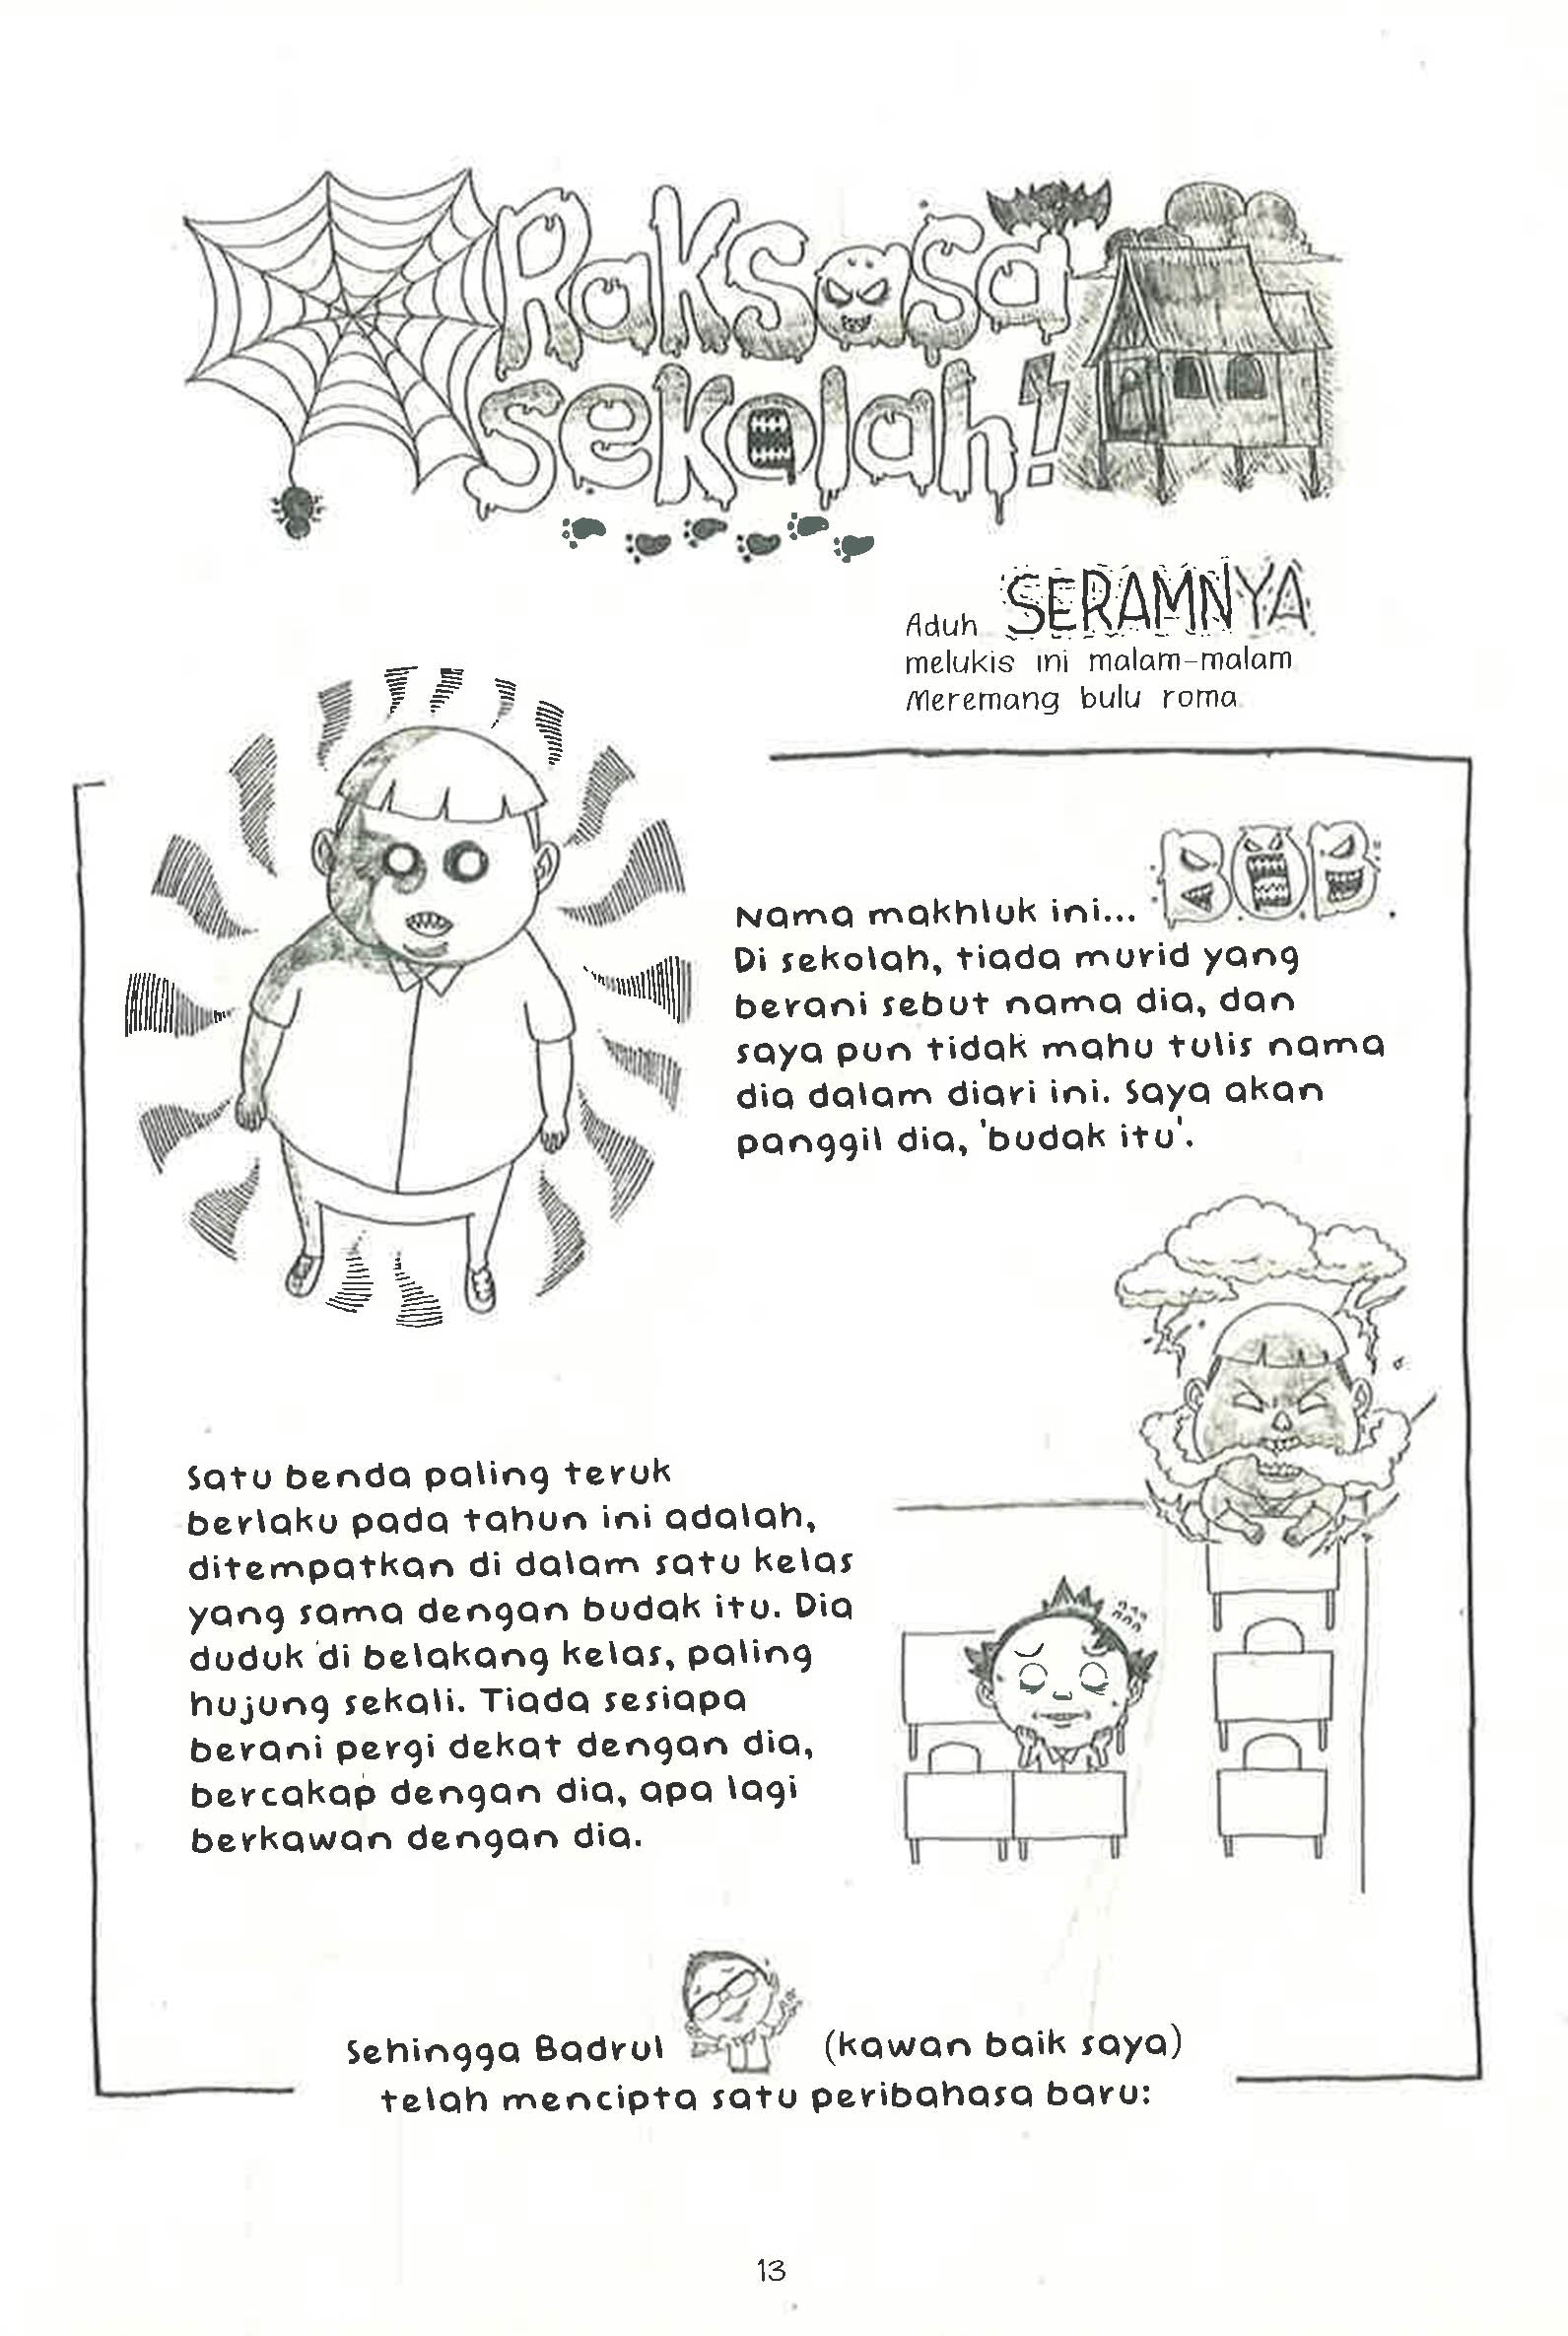 Raksasa
sekolah!
Aduh SERAMNYA
melukis ini malam-malam
Meremang bulu roma
Nama makhluk ini... BOB.
Di sekolah, tiada murid yang
berani sebut nama dia, dan
saya pun tidak mahu tulis nama
dia dalam diari ini. Saya akan
panggil dia, 'budak itu'.
Satu benda paling teruk
berlaku pada tahun ini adalah,
ditempatkan di dalam satu kelas
yang sama dengan budak itu. Dia
duduk di belakang kelas, paling
hujung sekali. Tiada sesiapa
berani pergi dekat dengan dia,
bercakap dengan dia, apa lagi
berkawan dengan dia.
Sehingga Badrul (kawan baik saya)
telah mencipta satu peribahasa baru:
13